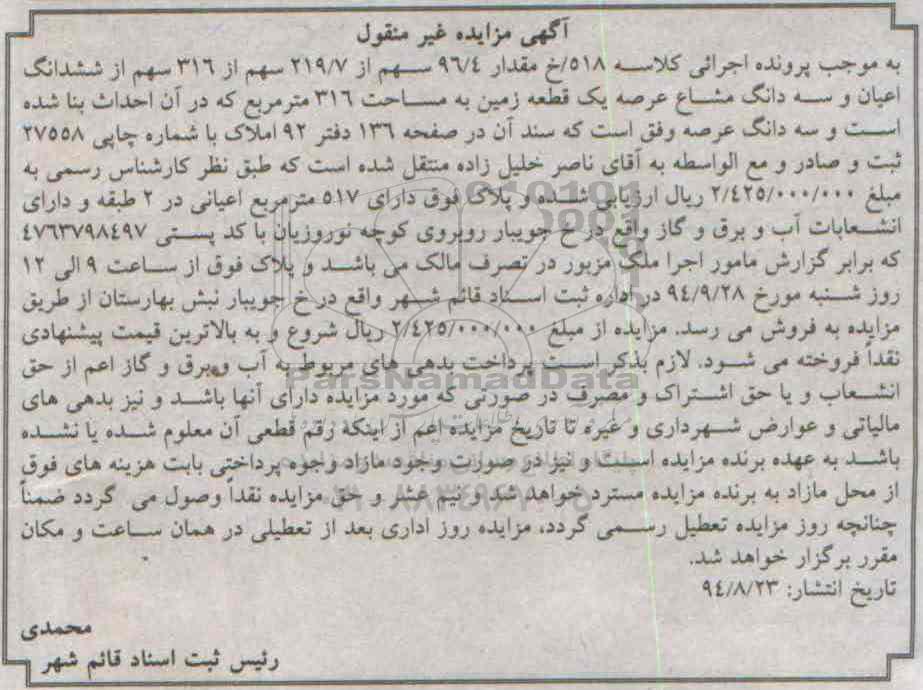 آگهی مزایده غیر منقول
به موجب پرونده اجرائی کلاسه ۵۱۸/خ مقدار ۹۶/۴ سهم از ۲۱۹/۷ سهم از ۳۱۶ سهم از ششدانگ
اعیان و سه دانگ مشاع عرصه یک قطعه زمین به مساحت ۳۱۶ مترمربع که در آن احداث بنا شده
است و سه دانگ عرصه وقق است که سند آن در صفحه ۱۳۶ دفتر ۹۲ املاک با شماره چاپی ۲۷۵۵۸
ثبت و صادر و مع الواسطه به آقای ناصر خلیل زاده منتقل شده است که طبق نظر کارشناس رسمی به
مبلغ ۲/۴۲۵/۰۰۰/۰۰۰ ریال ارزیابی شده و پلاک فوق دارای ۵۱۷ مترمربع اعیانی در ۲ طبقه و دارای
انشعابات آب و برق و گاز واقع در خ جویبار روبروی کوچه نوروزیان با کد پستی ۴۷۶۳۷۹۸۴۹۷
که برابر گزارش مامور اجرا ملک مزبور در تصرف مالک می باشد و پلاک فوق از ساعت ۹ الی ۱۲
روز شنبه مورخ ۹۴/۹/۲۸ در اداره ثبت اسناد قائم شهر واقع در خ جویبار نبش بهارستان از طریق
مزایده به فروش می رسد. مزایده از مبلغ ۲/۴۲۵/۰۰۰/۰۰۰ ریال شروع و به بالاترین قیمت پیشنهادی
نقداً فروخته می شود. لازم بذکر است پرداخت بدهی های مربوط به آب و برق و گاز اعم از حق
انشعاب و یا حق اشتراک و مصرف در صورتی که مورد مزایده دارای آنها باشد و نیز بدهی های
مالیاتی و عوارض شهرداری و غیره تا تاریخ مزایده اعم از اینکه رقم قطعی آن معلوم شده یا نشده
باشد به عهده برنده مزایده است و نیز در صورت وجود مازاد وجوه پرداختی بابت هزینه های فوق
از محل مازاد به برنده مزایده مسترد خواهد شد و نیم عشر و حق مزایده نقداً وصول می گردد ضمناً
چنانچه روز مزایده تعطیل رسمی گردد، مزایده روز اداری بعد از تعطیلی در همان ساعت و مکان
مقرر برگزار خواهد شد.
تاریخ انتشار: ۹۴/۸/۲۳
محمدی
رئیس ثبت اسناد قائم شهر
ParsNamadData